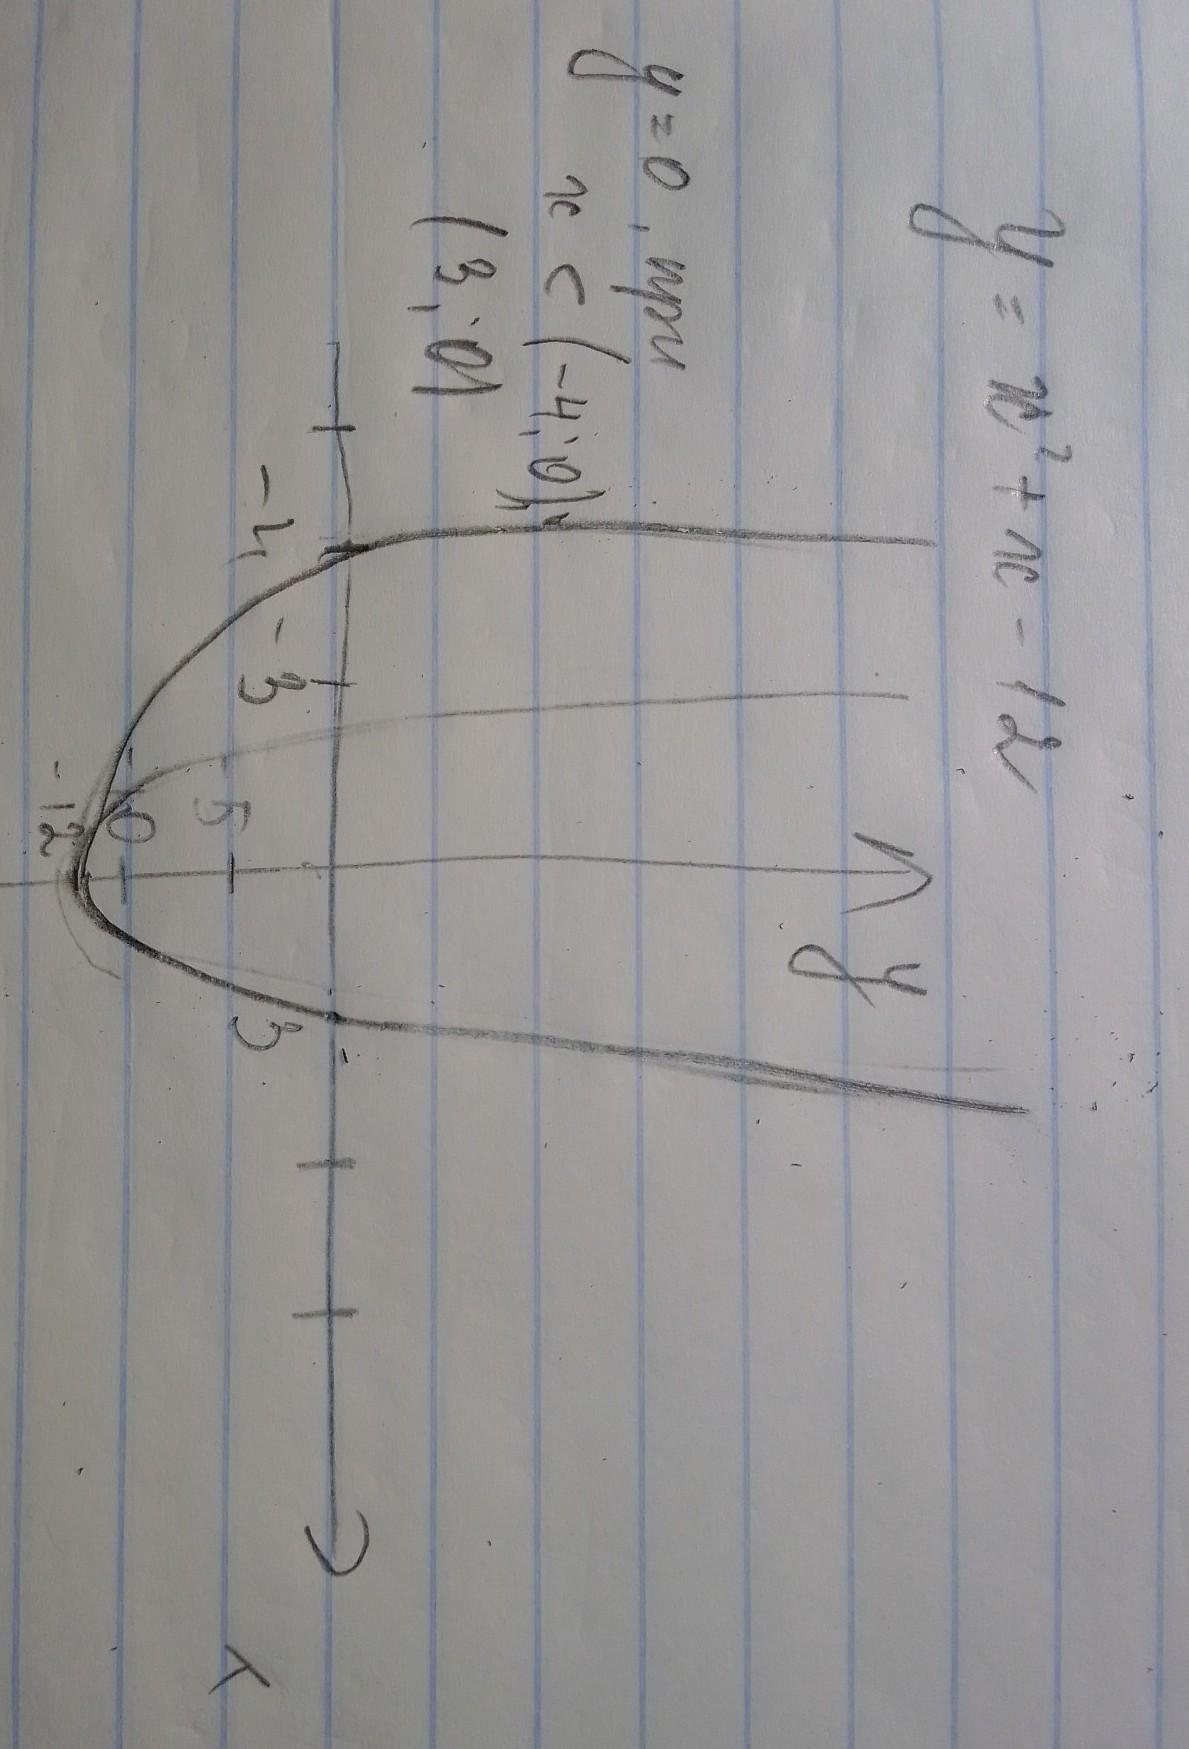 y = x² + x - 12
y = 0, при
x ∈ (-4; 0) и
(3; 0)
y
-4
-3
3
5
10
-12
x